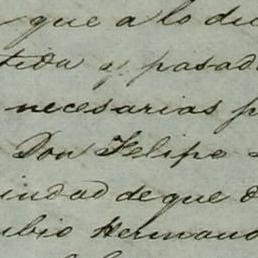 que a lo di
tida y pasad
necesarias p
Don Felipe
iudad de que
ubio Hermano